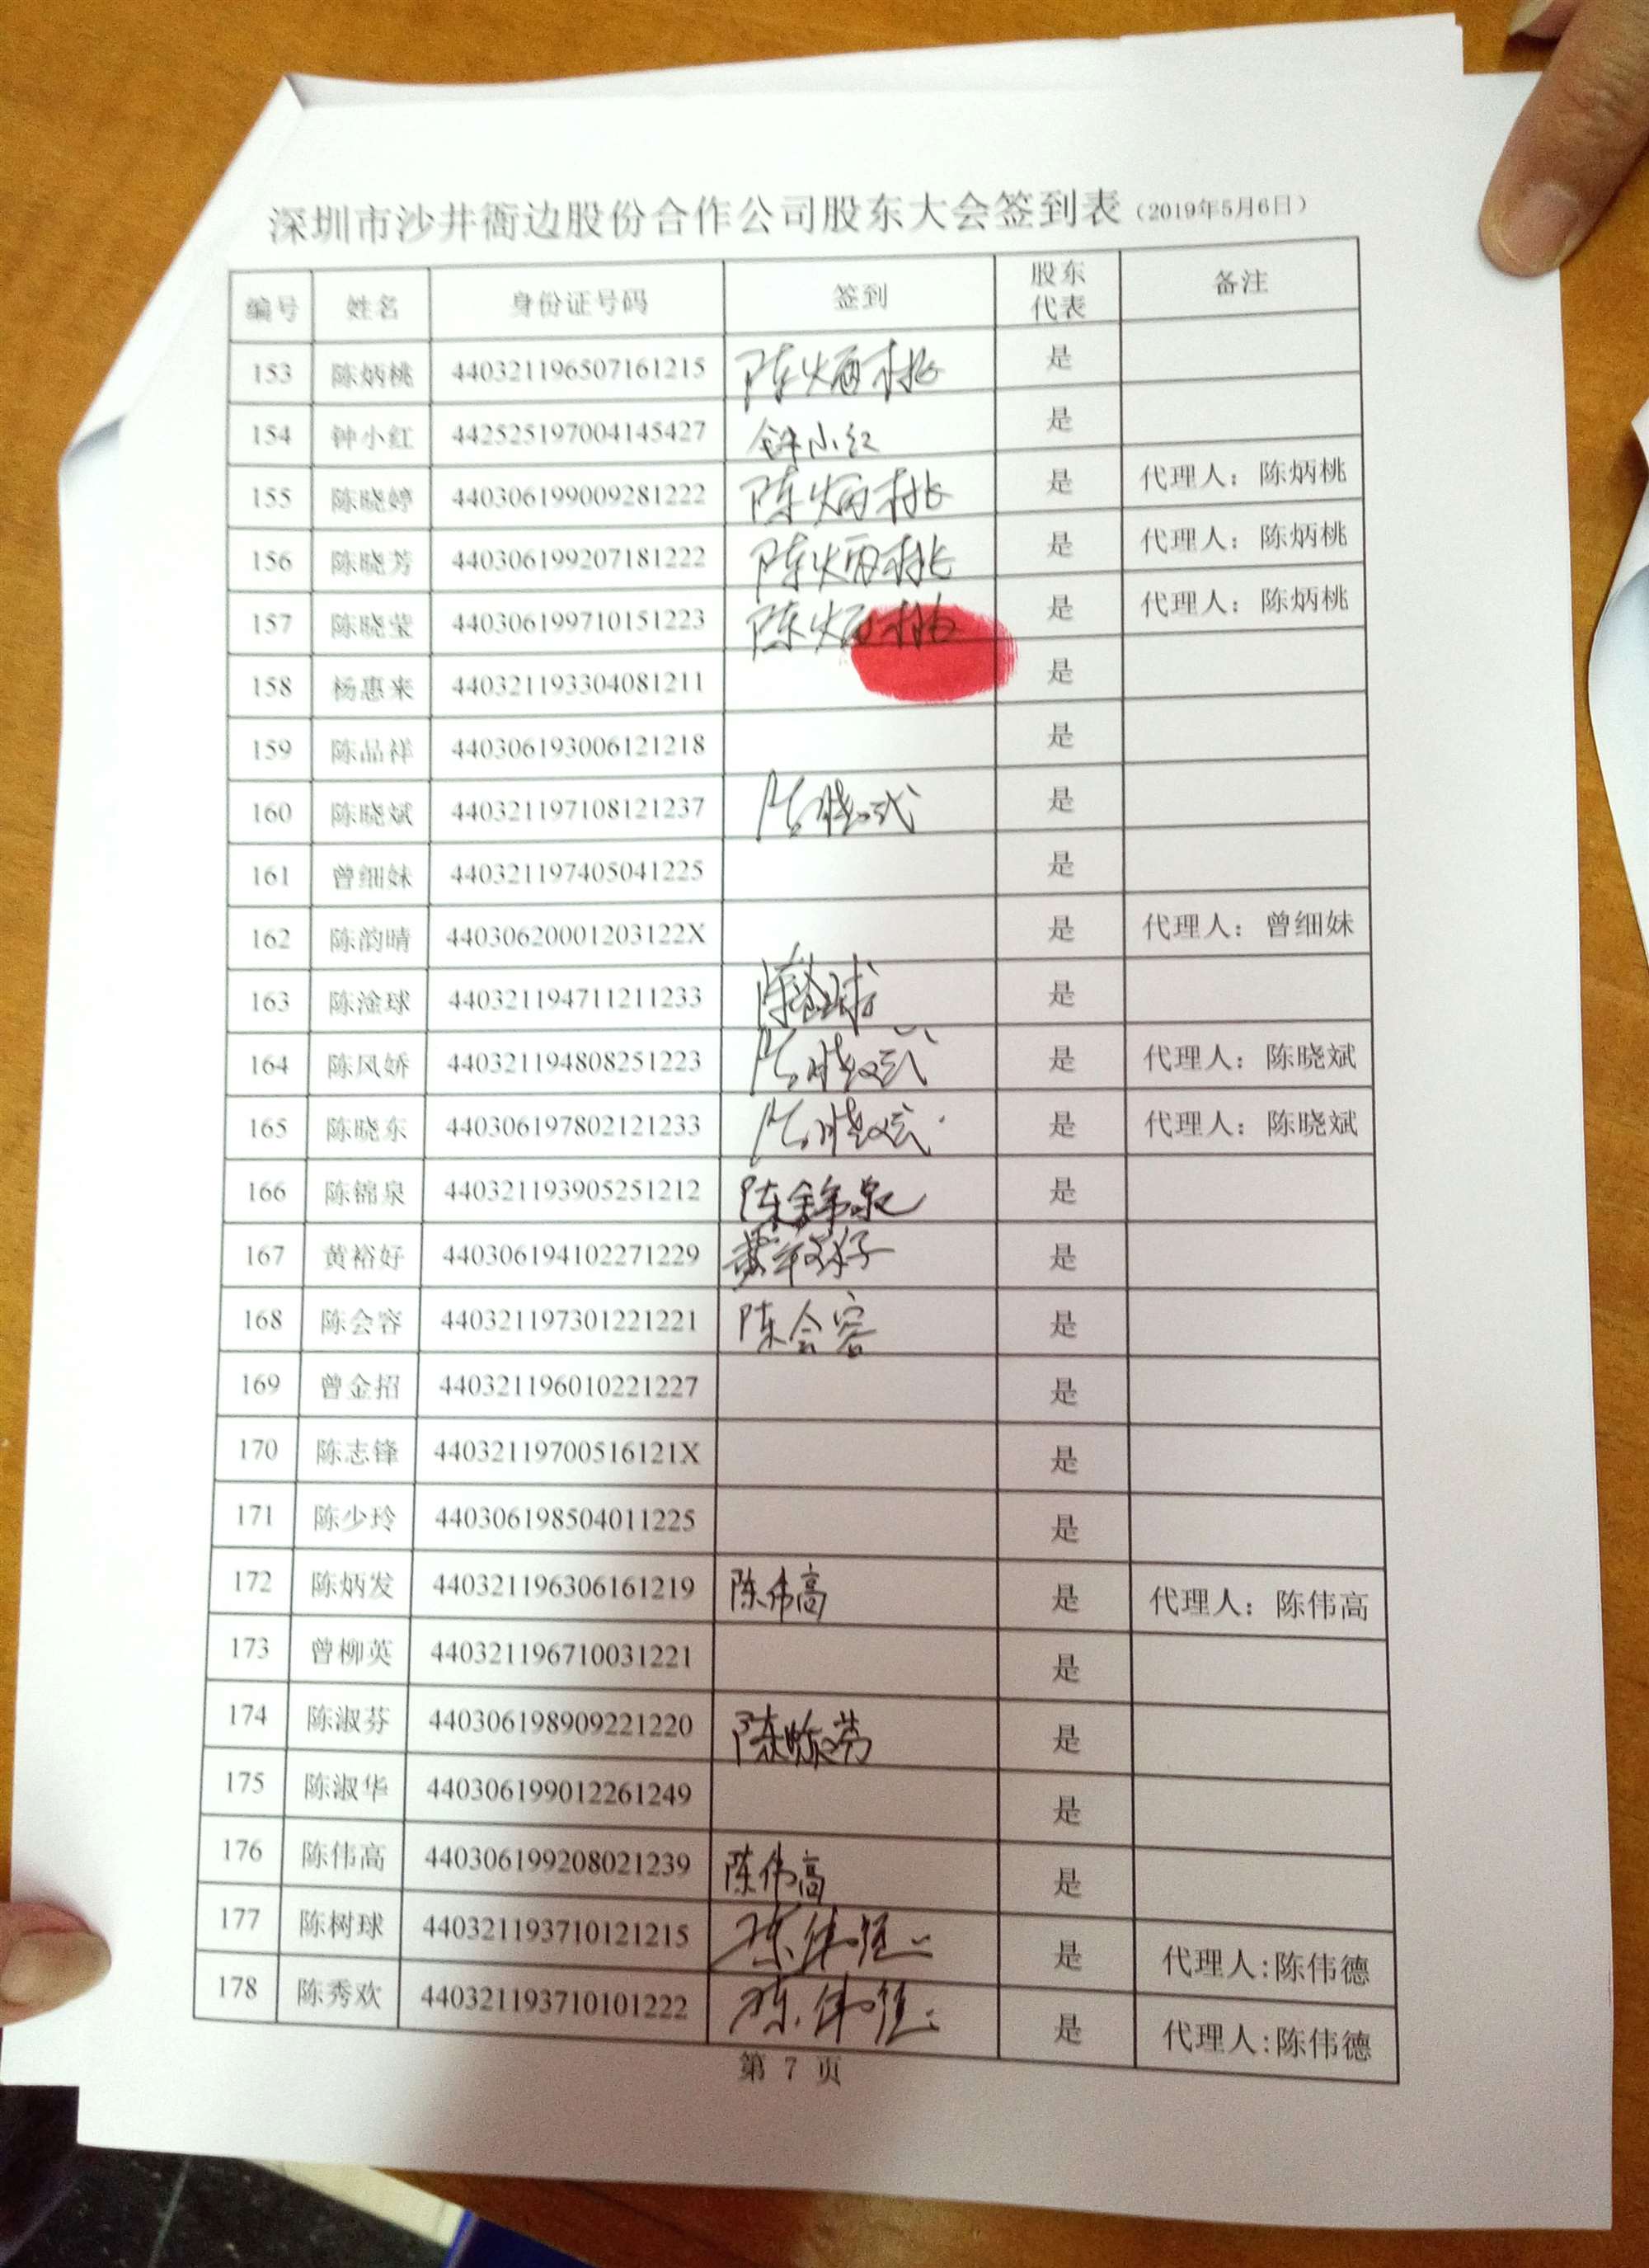 深圳市沙井衙边股份合作公司股东大会签到表（2019年5月6日）
编号 姓名 身份证号码 签到 股东代表 备注
153 陈炳桃 440321196507161215 陈炳桃 是
154 钟小红 442525197004145427 钟小红 是
155 陈晓婷 440306199009281222 陈炳桃 是 代理人：陈炳桃
156 陈晓芳 440306199207181222 陈炳桃 是 代理人：陈炳桃
157 陈晓莹 440306199710151223 陈炳桃 是 代理人：陈炳桃
158 杨惠来 440321193304081211 是
159 陈品祥 440306193006121218 是
160 陈晓斌 440321197108121237 陈晓斌 是
161 曾细妹 440321197405041225 是
162 陈韵晴 44030620001203122X 是 代理人：曾细妹
163 陈淦球 440321194711211233 陈淦球 是
164 陈凤娇 440321194808251223 陈晓斌 是 代理人：陈晓斌
165 陈晓东 440306197802121233 陈晓斌 是 代理人：陈晓斌
166 陈锦泉 440321193905251212 陈锦泉 是
167 黄裕好 440306194102271229 黄裕好 是
168 陈会容 440321197301221221 陈会容 是
169 曾金招 440321196010221227 是
170 陈志锋 44032119700516121X 是
171 陈少玲 440306198504011225 是
172 陈炳发 440321196306161219 陈伟高 是 代理人：陈伟高
173 曾柳英 440321196710031221 是
174 陈淑芬 440306198909221220 陈淑芬 是
175 陈淑华 440306199012261249 是
176 陈伟高 440306199208021239 陈伟高 是
177 陈树球 440321193710121215 陈伟德 是 代理人:陈伟德
178 陈秀欢 440321193710101222 陈伟德 是 代理人:陈伟德
第 7 页